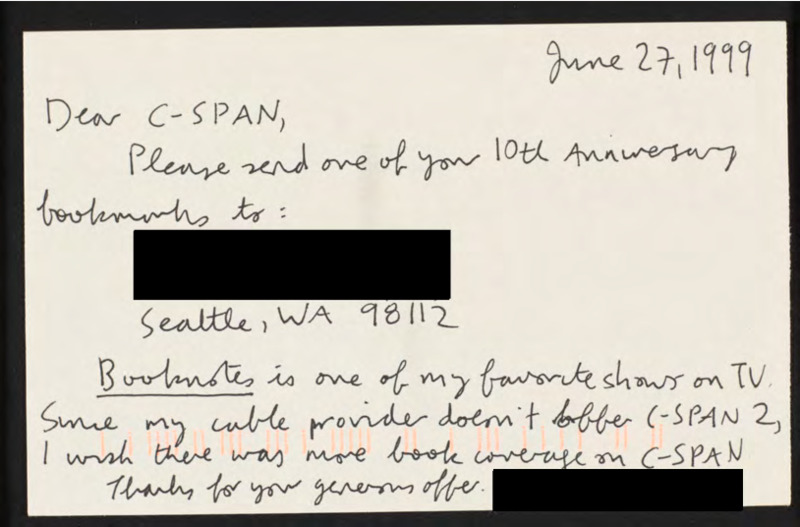 June 27, 1999
Dear C-SPAN,
Please send one of your 10th Anniversary
bookmarks to:
Seattle, WA 98112
Booknotes is one of my favorite shows on TV.
Since my cable provider doesn't offer C-SPAN 2,
I wish there was more book coverage on C-SPAN
Thanks for your generous offer.